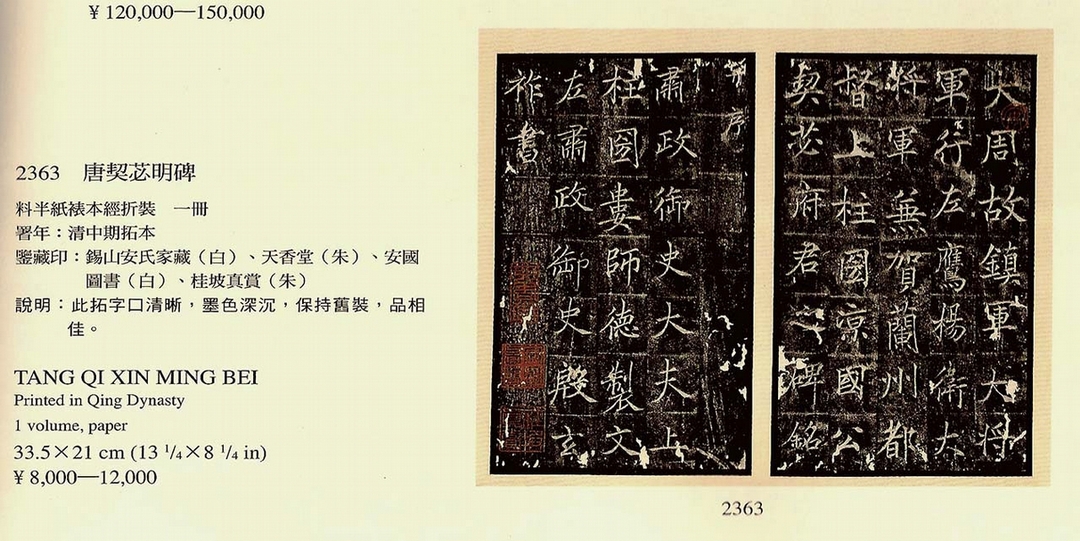 ¥ 120,000—150,000
2363 唐契苾明碑
料半紙裱本經折裝 一冊
署年：清中期拓本
鑒藏印：錫山安氏家藏（白）、天香堂（朱）、安國
圖書（白）、桂坡真賞（朱）
說明：此拓字口清晰，墨色深沉，保持舊裝，品相
佳。
TANG QI XIN MING BEI
Printed in Qing Dynasty
1 volume, paper
33.5×21 cm (13 1/4×8 1/4 in)
¥ 8,000—12,000
大周故鎮軍大将
軍行左鷹楊衛大
将軍兼賀蘭州都
督上柱圀涼國公
契苾府君碑銘
序
肅政御史大夫上
柱圀婁師德製文
左肅政御史殿玄
祚書
2363